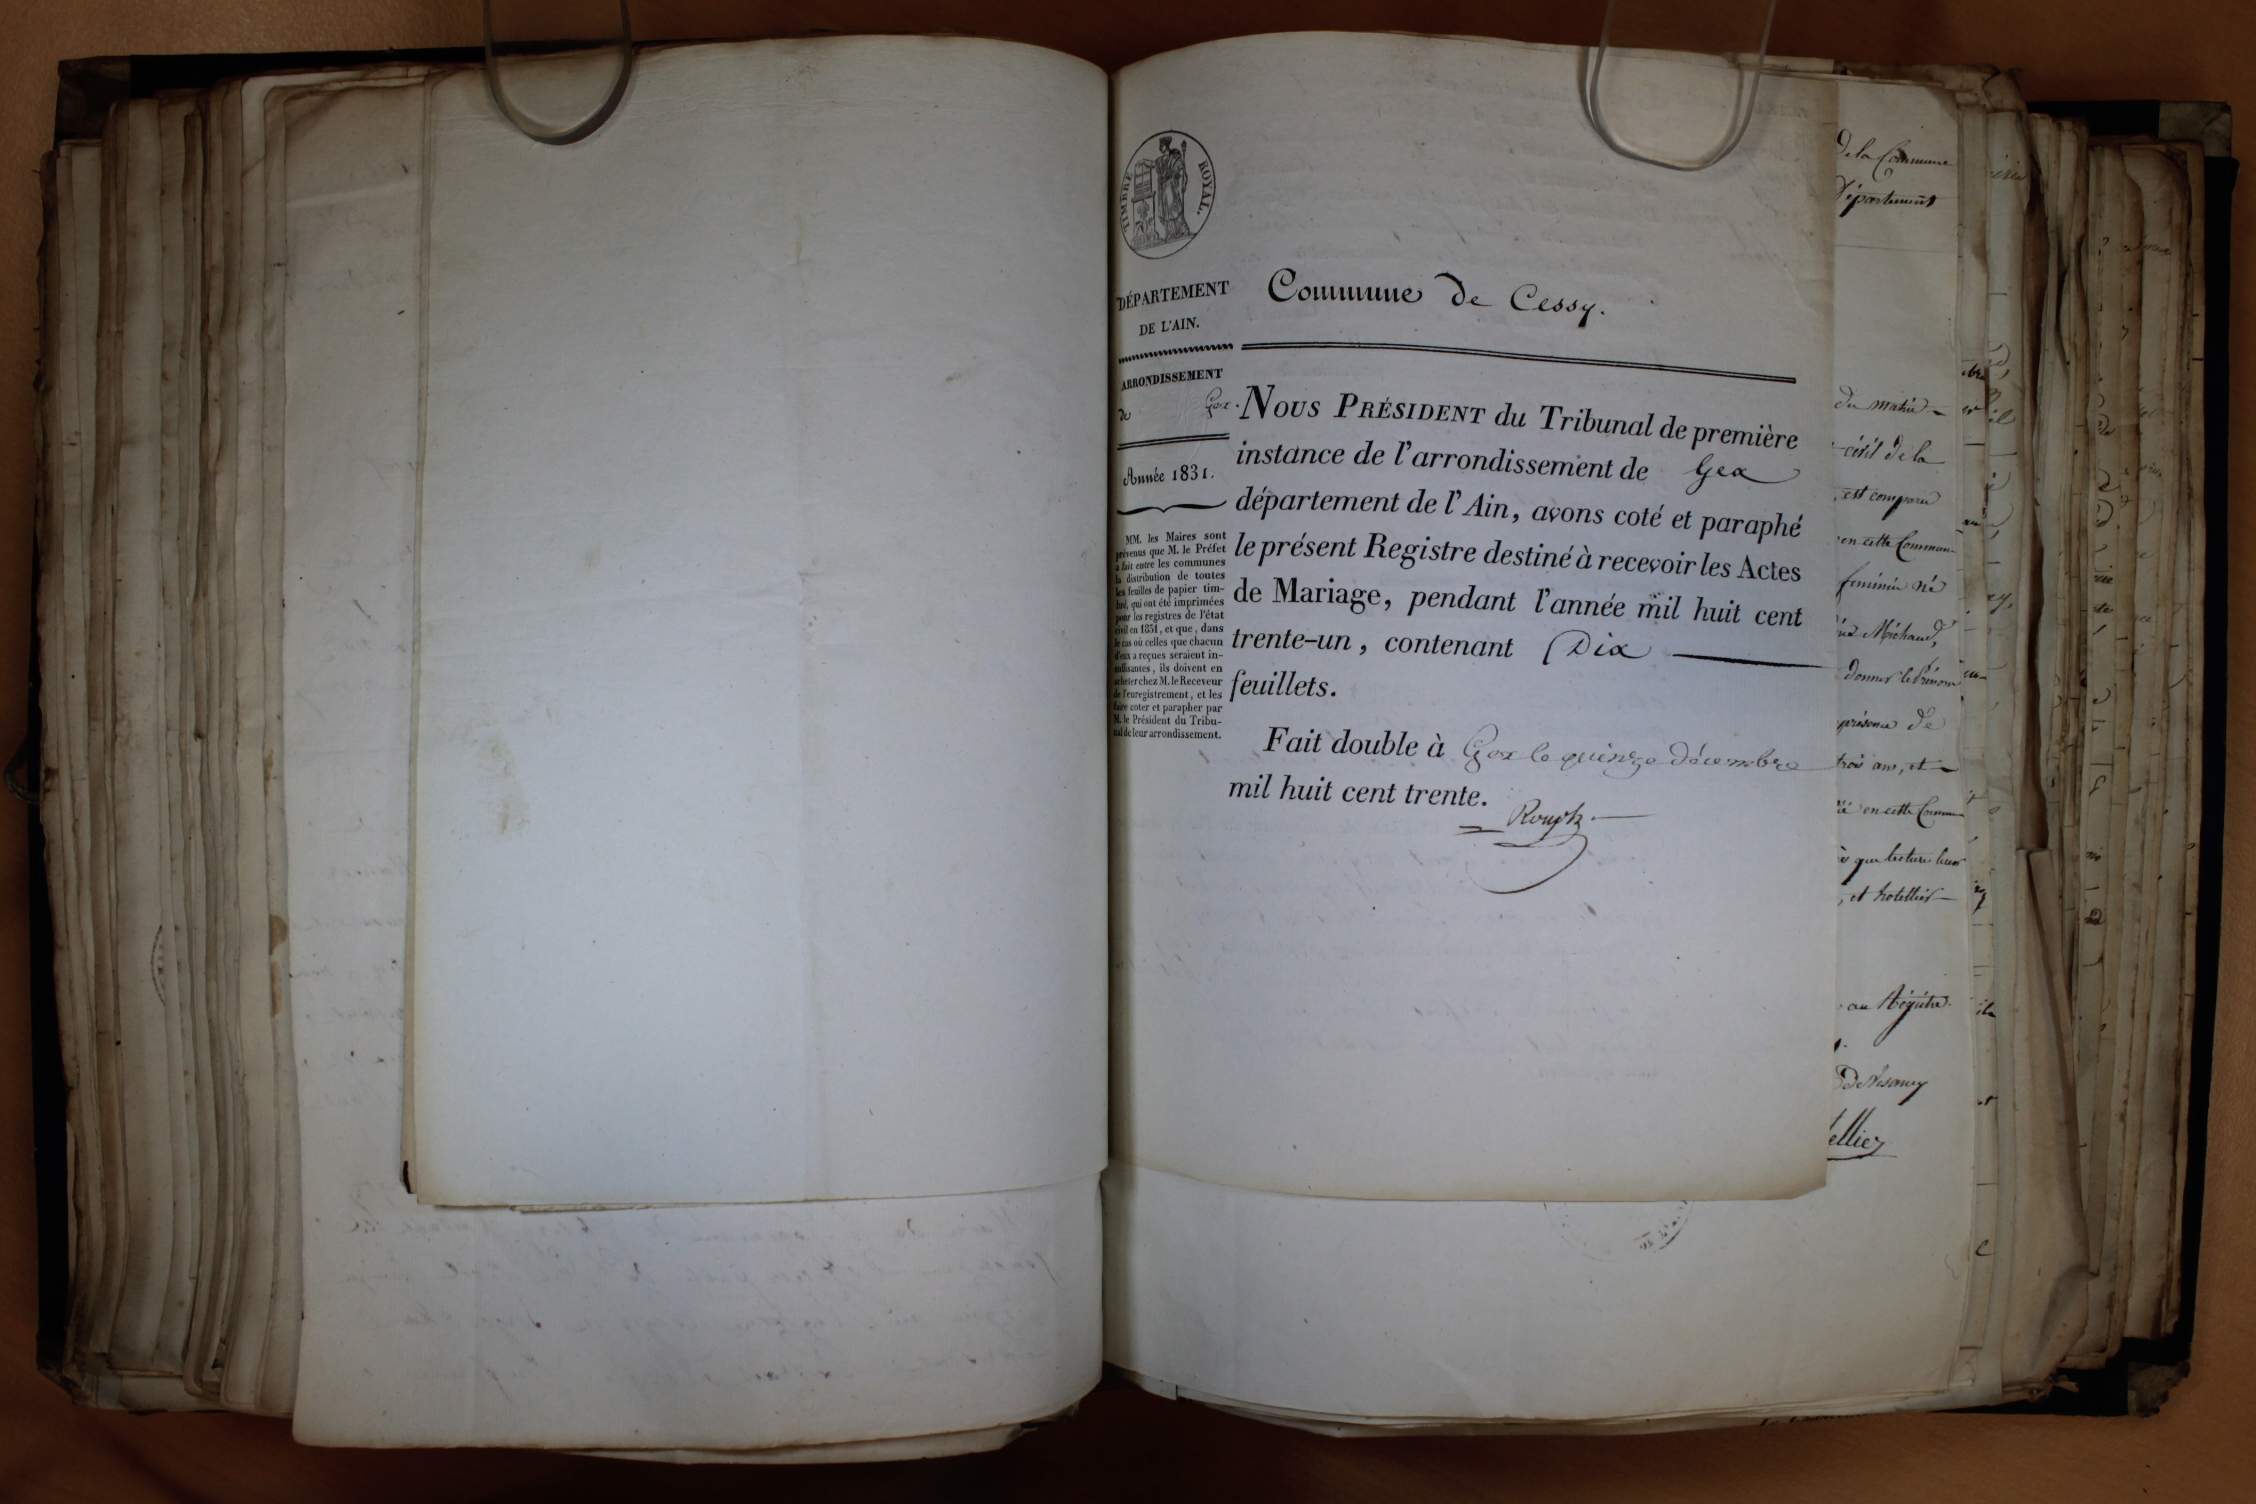 TIMBRE ROYAL.
DÉPARTEMENT
DE L'AIN.
ARRONDISSEMENT
de Gex.
Année 1831.
MM. les Maires sont
prévenus que M. le Préfet
a fait entre les communes
la distribution de toutes
les feuilles de papier tim-
bré, qui ont été imprimées
pour les registres de l'état
civil en 1831, et que, dans
le cas où celles que chacun
d'eux a reçues seraient in-
suffisantes, ils doivent en
acheter chez M. le Receveur
de l'enregistrement, et les
faire coter et parapher par
M. le Président du Tribu-
nal de leur arrondissement.
Commune de Cessy.
NOUS PRÉSIDENT du Tribunal de première
instance de l'arrondissement de Gex
département de l'Ain, avons coté et paraphé
le présent Registre destiné à recevoir les Actes
de Mariage, pendant l'année mil huit cent
trente-un, contenant Dix
feuillets.
Fait double à Gex le quinze décembre
mil huit cent trente.
Rouph
de la Commune
Département
du matin
civil de la
est comparu
en cette Commun-
feminin né
Michaud,
donner le Prénom
présence de
trois ans, et
en cette Commune
que lecture leur
, et hotellier
au Régistre.
tellier